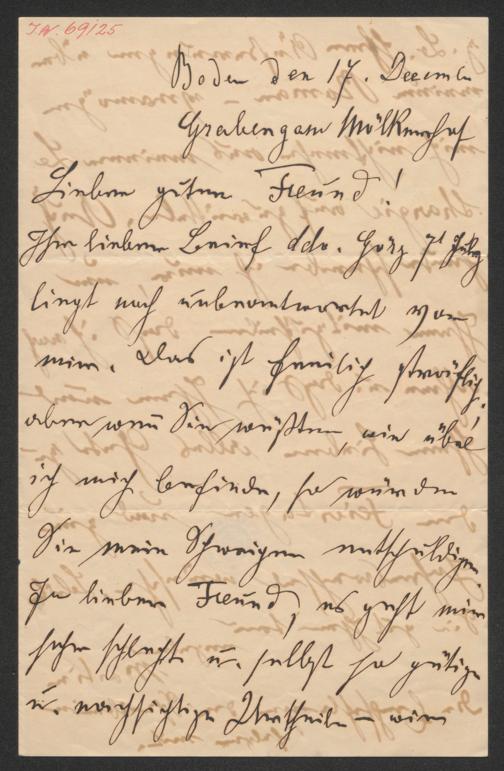 I.N. 69125
Baden den 17. Decemb
Grabengasse Mölkerhof
Lieber guter Freund!
Ihr lieber Brief ddo. Görz 7t July
liegt noch unbeantwortet vor
mir. Das ist freilich sträflich,
aber wenn Sie wüßten, wie übel
ich mich befinde, so würden
Sie mein Schweigen entschuldigen.
Ja lieber Freund, es geht mir
sehr schlecht u. selbst so gütige
u. nachsichtige Urtheile – wie